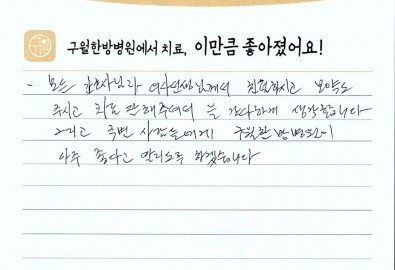 구월한방병원에서 치료, 이만큼 좋아졌어요!
- 모든 간호사님과 의사선생님께서 친절하시고 보약도
주시고 치료 잘해주셔서 늘 감사하게 생각합니다
그리고 주변 사람들에게 구월한방병원이
아주 좋다고 알리도록 하겠습니다